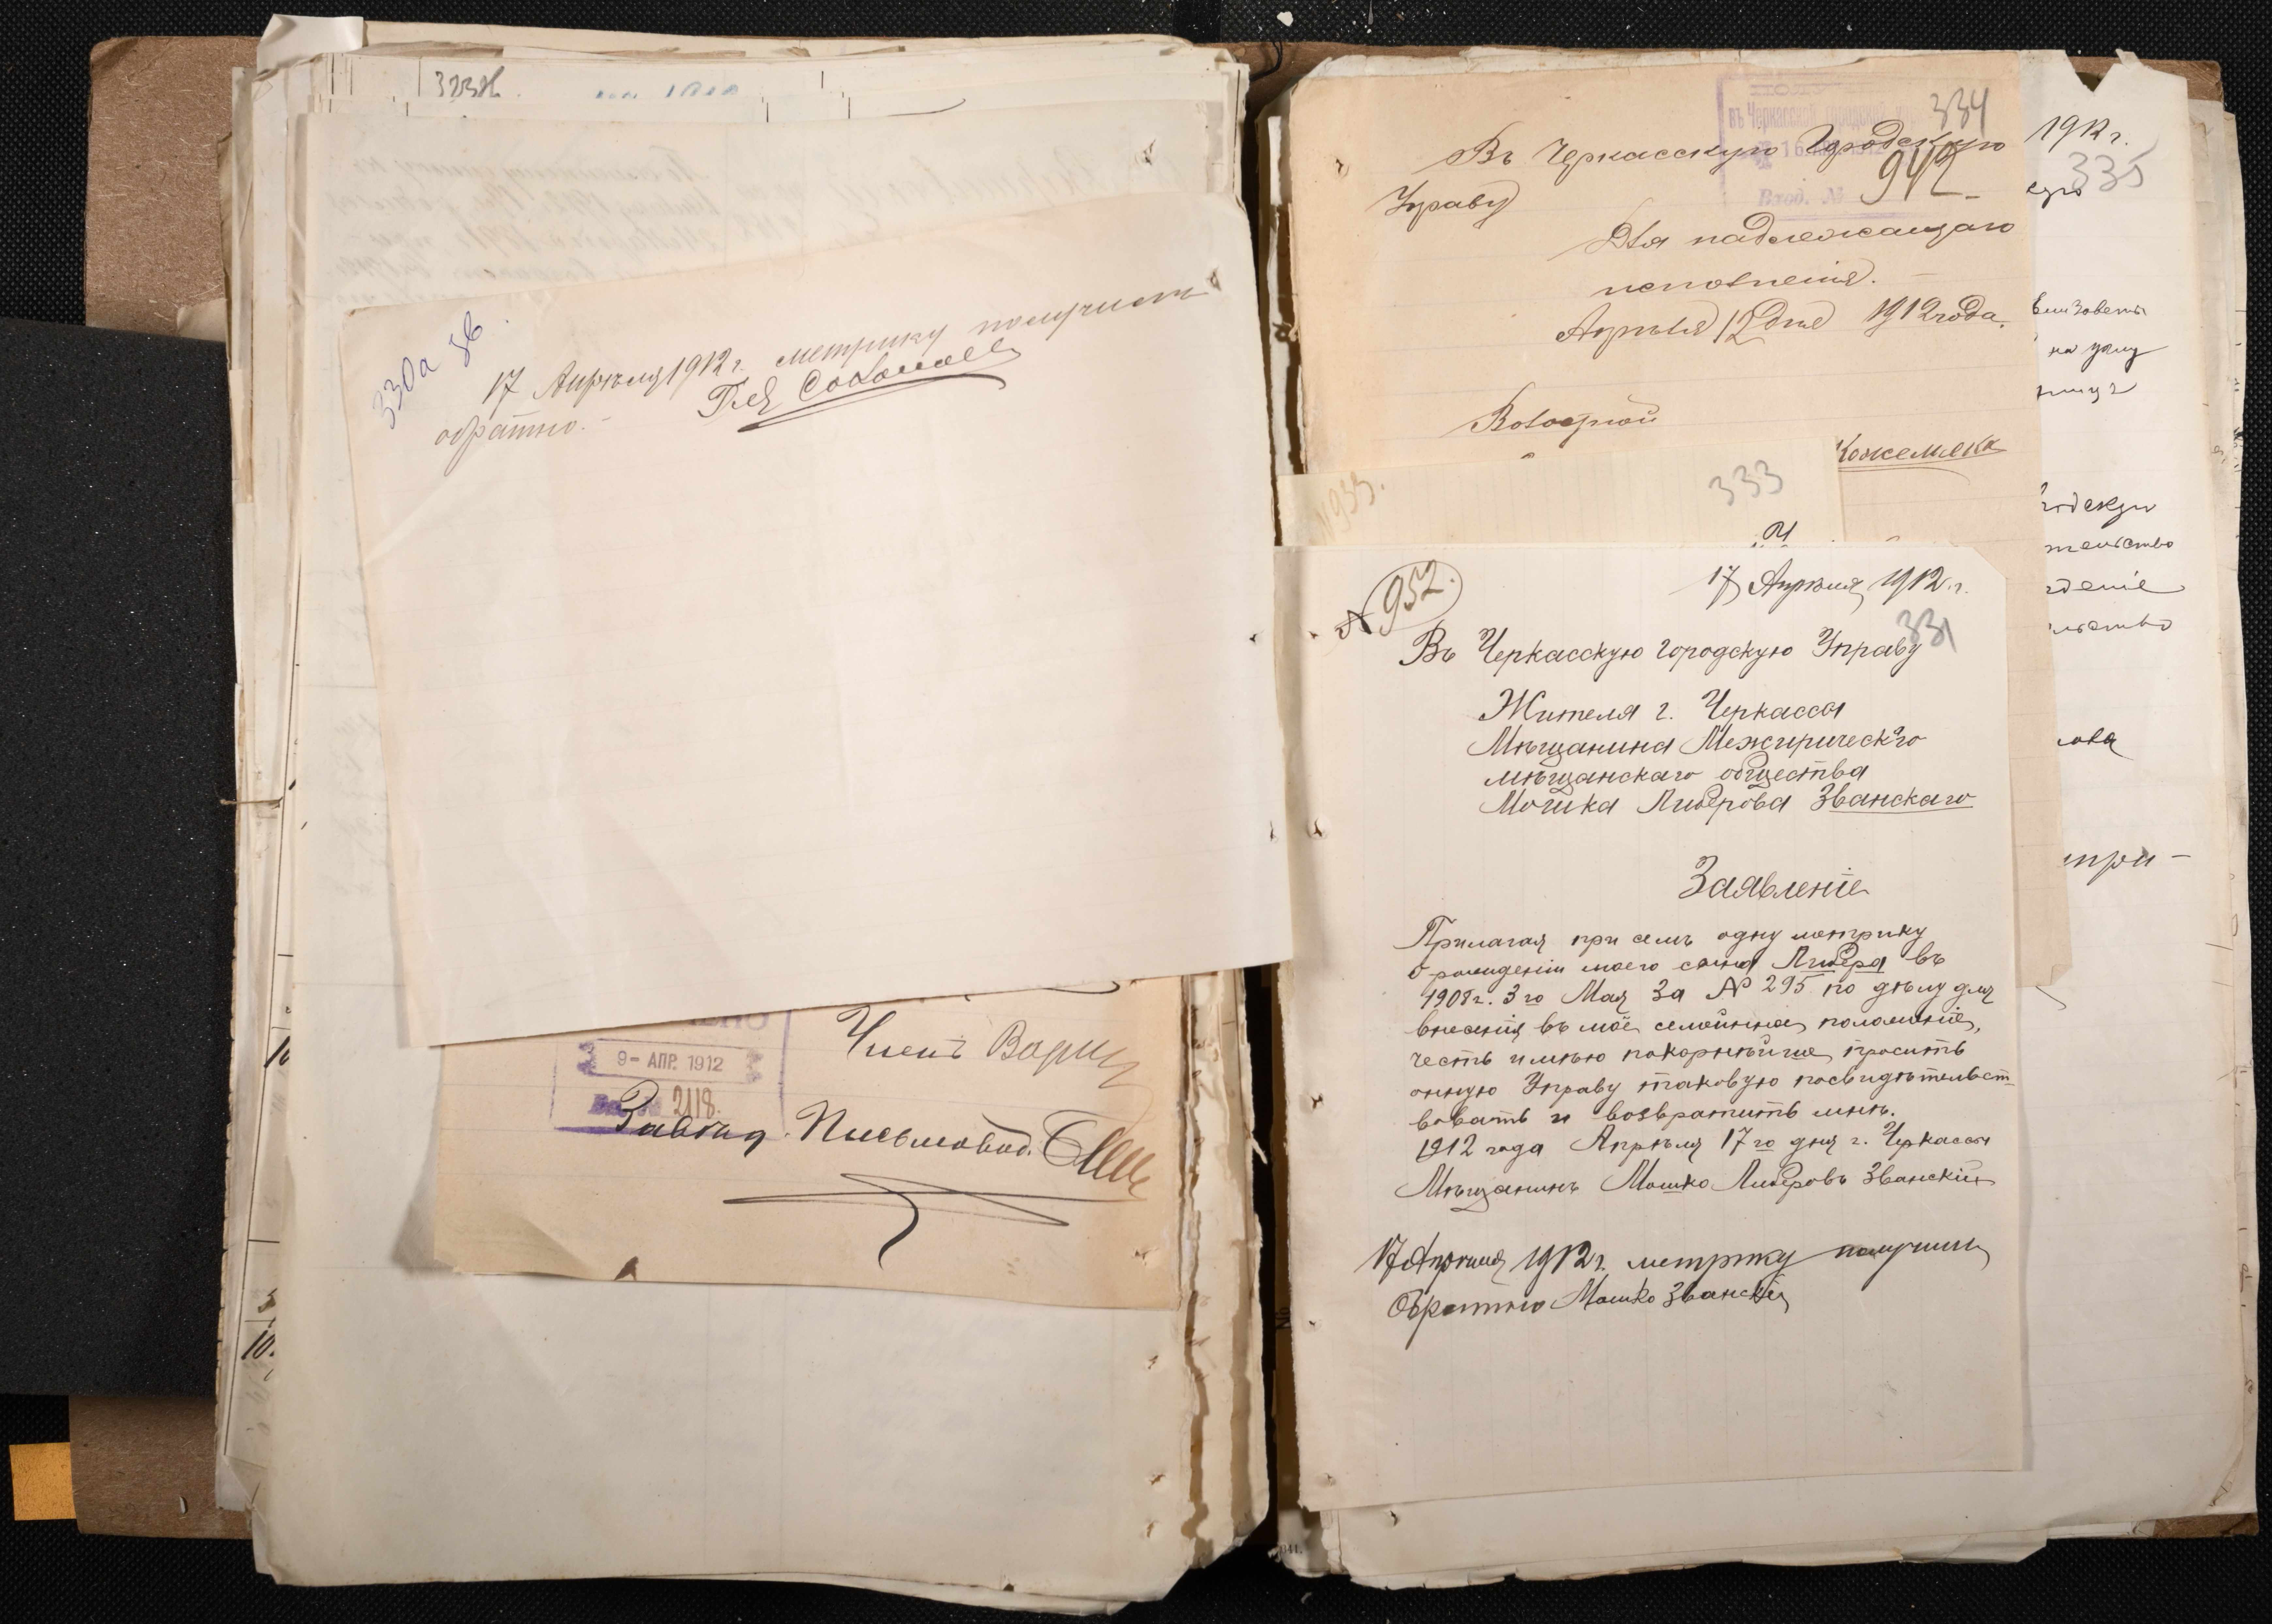 323 зв.
330а зв.
17 Апрѣля 1912 г. метрику получилъ
обратно.
9 - АПР. 1912
2118.
Членъ
Завѣд. Письмовод.
334
Въ Черкасскую Городскую
942
Управу
Вход. №
Для надлежащаго
исполненія.
Апрѣля 12 дня 1912 года.
Кожемяка
333
335
1912 г.
952.
17 Апрѣля 1912 г.
331
Въ Черкасскую Городскую Управу
Жителя г. Черкассы
Мѣщанина Межирическго
мѣщанскаго общества
Мошка Либерова Званскаго
Заявленіе
Прилагая при семъ одну метрику
о рожденіи моего сына Либера въ
1908 г. 3го Мая за № 295 по дѣлу для
внесенія въ моё семейное положеніе,
честь имѣю покорнѣйше просить
онную Управу таковую посвидѣтельст-
вовать и возвратить мнѣ.
1912 года Апрѣля 17го дня г. Черкассы
Мѣщанинъ Мошко Либеровъ Званскій
17 Апрѣля 1912 г. метрику получилъ
Обратно Мошко Званскій